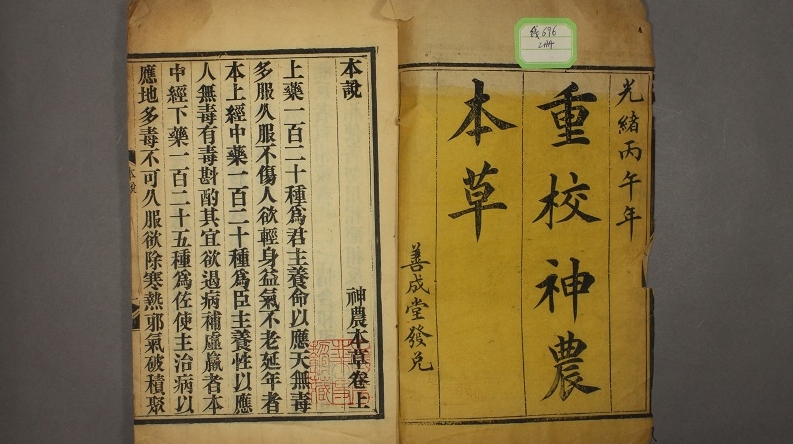 光緒丙午年
重校神農
本草
善成堂發兌
本說
神農本草卷上
上藥一百二十種爲君主養命以應天無毒
多服久服不傷人欲輕身益氣不老延年者
本上經中藥一百二十種爲臣主養性以應
人無毒有毒斟酌其宜欲遏病補虛羸者本
中經下藥一百二十五種爲佐使主治病以
應地多毒不可久服欲除寒熱邪氣破積聚
本說